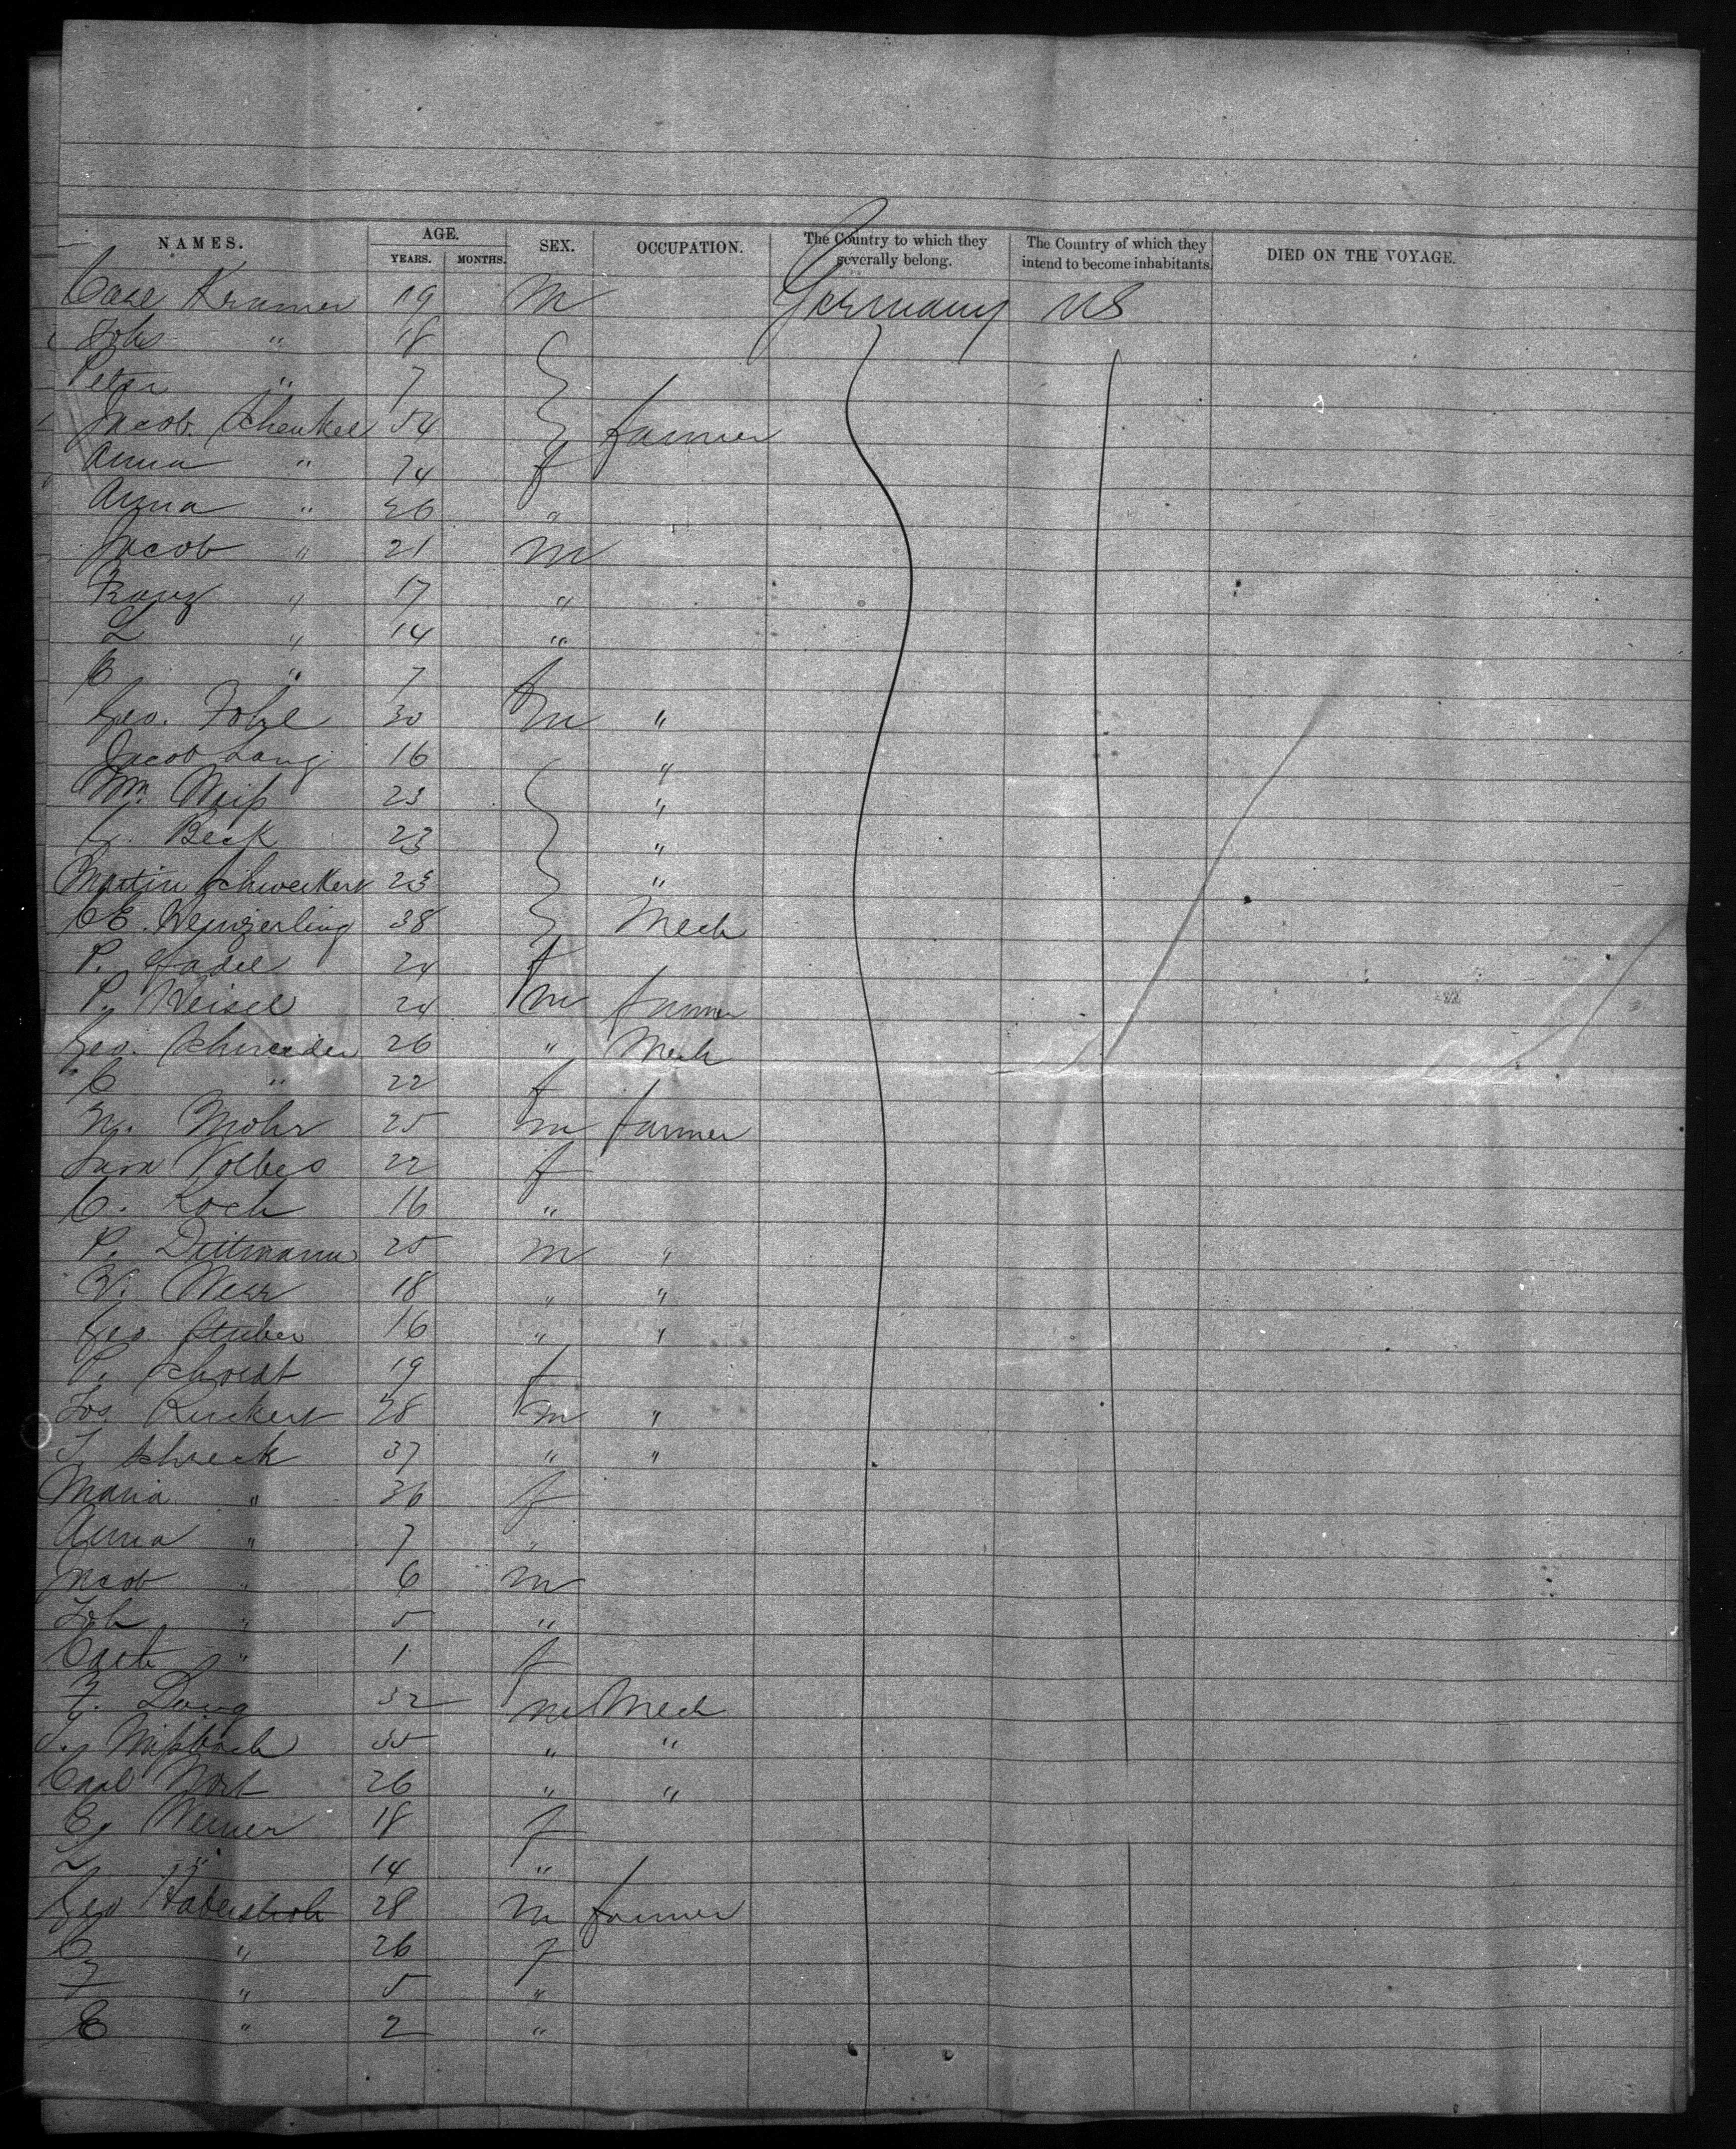 NAMES. AGE. YEARS. MONTHS. SEX. OCCUPATION. The Country to which they severally belong. The Country of which they intend to become inhabitants. DIED ON THE VOYAGE.
Carl Kramer 19 M Germany US
Johs " 18
Peter " 7
Jacob Schenkel 54 farmer
Anna " f
Anna " "
Jacob " 21 M
Franz " 17 "
L " 14 "
C " 7 f
Geo. 30 M "
Jacob Lang 16 "
Wm. Weiß 23 "
G. Beck 23 "
Martin Schweikert 23 "
CE. 38 Mech
P. 24 f
P. Weisel 24 m farmer
Geo. Schneider 26 " Mech
C " 22 f
N. Mohr 25 m farmer
22 f
C. Koch 16 "
P. Dittmann 25 m "
Werr 18 " "
Geo Stuber 16 " "
P. 19 f
Jos Ruckert 28 m "
J. Schreck 37 " "
Maria " 36 f
Anna " 7 "
Jacob " 6 m
Joh " 5 "
Cath " 1 f
F. 32 m Mech
J. Mißbach 35 " "
Carl 26 " "
E. Werner 18 f
L " 14 "
Geo Haberstroh 28 m farmer
C " 26 f
F " 5 "
E " 2 "